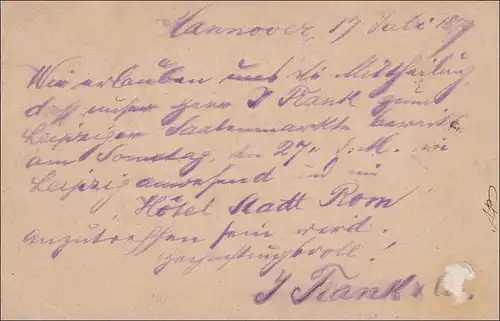 Hannover, 17 Juli 1879
Wir erlauben uns die Mittheilung
daß unser Herr J Flank zum
Leipziger Saatenmarkte bereits
am Sonntag, den 27. d. M. in
Leipzig anwesend und im
Hôtel Stadt Rom
anzutreffen sein wird.
Hochachtungsvoll!
J Flank & Co.